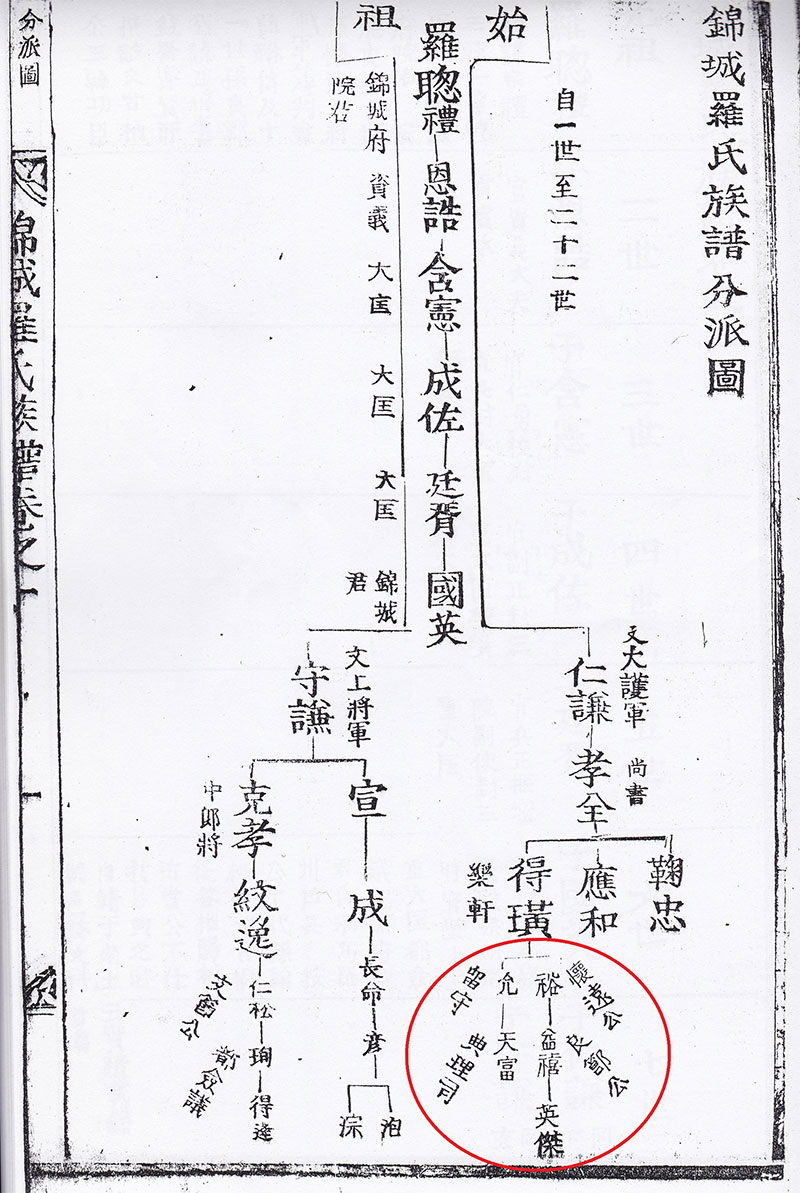 錦城羅氏族譜分派圖
自一世至二十二世
始祖
羅聰禮
恩誥
含憲
成佐
廷胥
國英
錦城府院君
資義
大匡
大匡
大匡
錦城君
文大護軍
仁謙
尚書
孝全
鞠忠
應和
得璜
樂軒
懷遠公
裕
良節公
益禧
英傑
允
留守
天富
典理司
文上將軍
守謙
宣
成
長命
彦
泊
淙
克孝
中郎將
紋逸
仁松
珣
得達
分派圖
錦城羅氏族譜卷之一
一